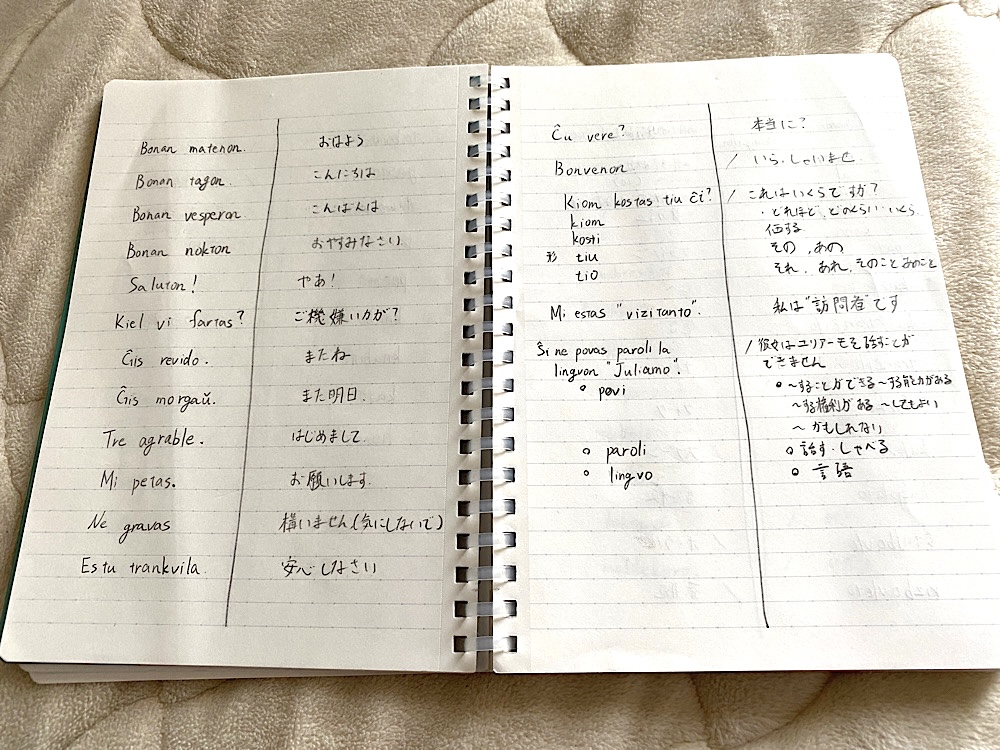 Bonan matenon. おはよう
Bonan tagon. こんにちは
Bonan vesperon こんばんは
Bonan nokton おやすみなさい
Saluton! やあ!
Kiel vi fartas? ご機嫌いかが?
Ĝis revido. またね
Ĝis morgaŭ. また明日.
Tre agrable. はじめまして.
Mi petas. お願いします.
Ne gravas 構いません(気にしないで)
Estu trankvila. 安心しなさい
Ĉu vere? 本当に?
Bonvenon / いらっしゃいませ
Kiom kostas tiu ĉi? / これはいくらですか?
kiom ・どれほど、どのくらい・いくら
kosti 価する
形 tiu その、あの
tio それ、あれ、そのこと あのこと
Mi estas "vizitanto". 私は"訪問者"です
Ŝi ne povas paroli la / 彼女はユリアーモを話すことが
lingvon "Juliamo". できません
○ povi ○ ~することができる ~する能力がある
~する権利がある ~してもよい
~かもしれない
○ paroli ○ 話す・しゃべる
○ lingvo ○ 言語